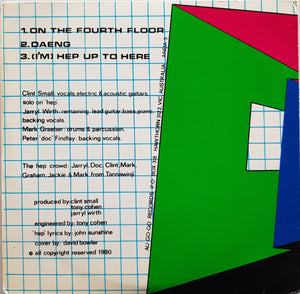 1.ON THE FOURTH FLOOR
2.DAENG
3.(I'M) HEP UP TO HERE
Clint Small: vocals, electric & acoustic guitars
solo on 'hep'
Jarryl Wirth: remaining lead guitar, bass, piano,
backing vocals.
Mark Graeber: drums & percussion.
Peter 'doc' Findlay: backing vocals.
The hep crowd: Jarryl, Doc, Clint, Mark,
Graham, Jackie & Mark from Tannawinji
produced by: clint small
tony cohen
jarryl wirth
engineered by: tony cohen
'hep' lyrics by: john sunshine
cover by: david bowler
© all copyright reserved 1980
AU GO GO RECORDS P.O. BOX 318 HAWTHORN 3122 VIC. AUSTRALIA